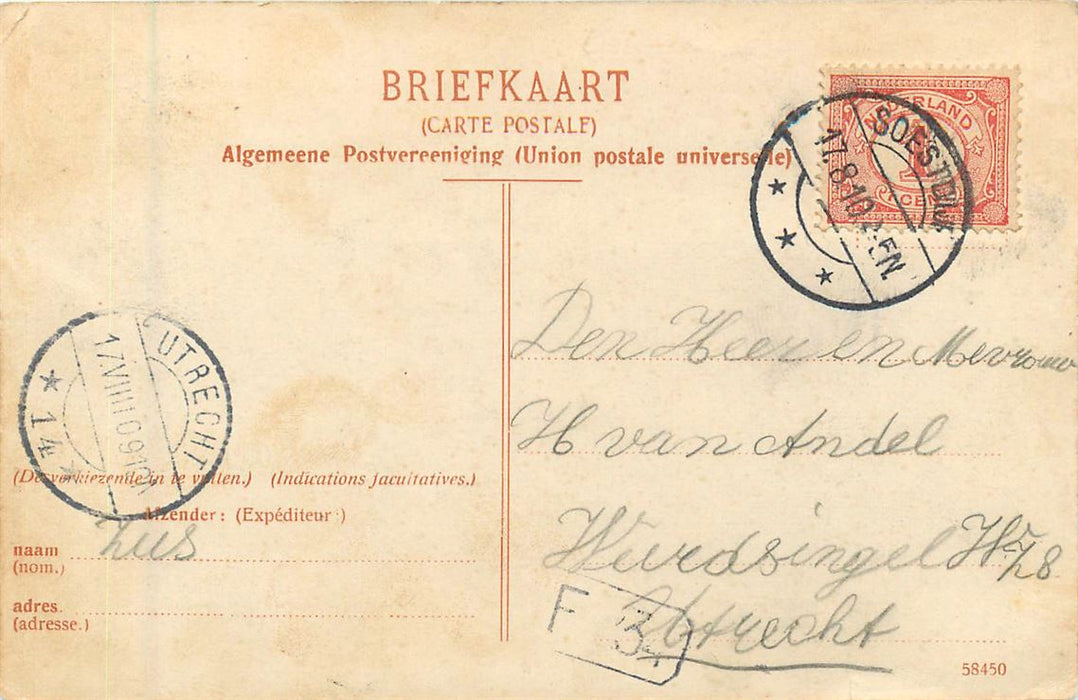 BRIEFKAART
(CARTE POSTALE)
Algemeene Postvereeniging (Union postale universelle)
NEDERLAND
1
CENT
SOESTDIJK
17.8.10 2-EN.
Den Heer en Mevrouw
H van Andel
Utrecht
UTRECHT
14
(Desverkiezende in te vullen.) (Indications facultatives.)
Afzender: (Expéditeur:)
naam Zus
(nom.)
adres.
(adresse.)
F 34
58450